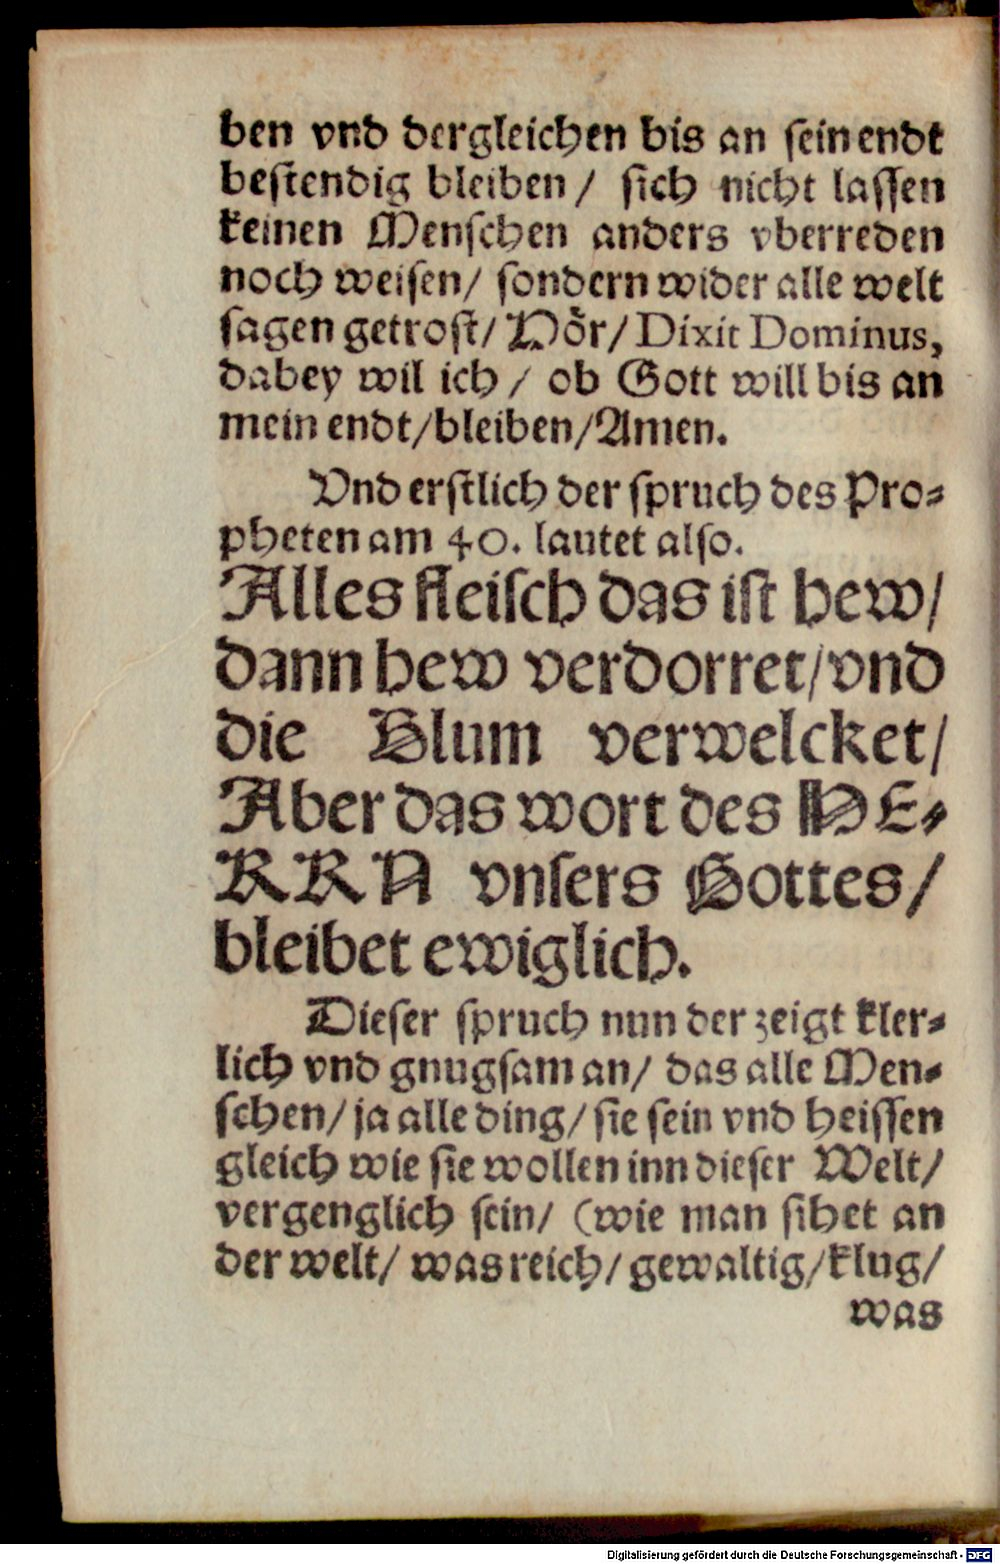 ben vnd dergleichen bis an sein endt
bestendig bleiben / sich nicht lassen
keinen Menschen anders vberreden
noch weisen/ sondern wider alle welt
sagen getrost/ Hör/ Dixit Dominus,
dabey wil ich / ob Gott will bis an
mein endt/bleiben/Amen.
Vnd erstlich der spruch des Pro-
pheten am 40. lautet also.
Alles fleisch das ist hew/
dann hew verdorret/vnd
die Blum verwelcket/
Aber das wort des HE-
RRN vnsers Gottes/
bleibet ewiglich.
Dieser spruch nun der zeigt kler-
lich vnd gnugsam an/ das alle Men-
schen/ ja alle ding/ sie sein vnd heissen
gleich wie sie wollen inn dieser Welt/
vergenglich sein/ (wie man sihet an
der welt/ was reich/ gewaltig/klug/
was
Digitalisierung gefördert durch die Deutsche Forschungsgemeinschaft - DFG